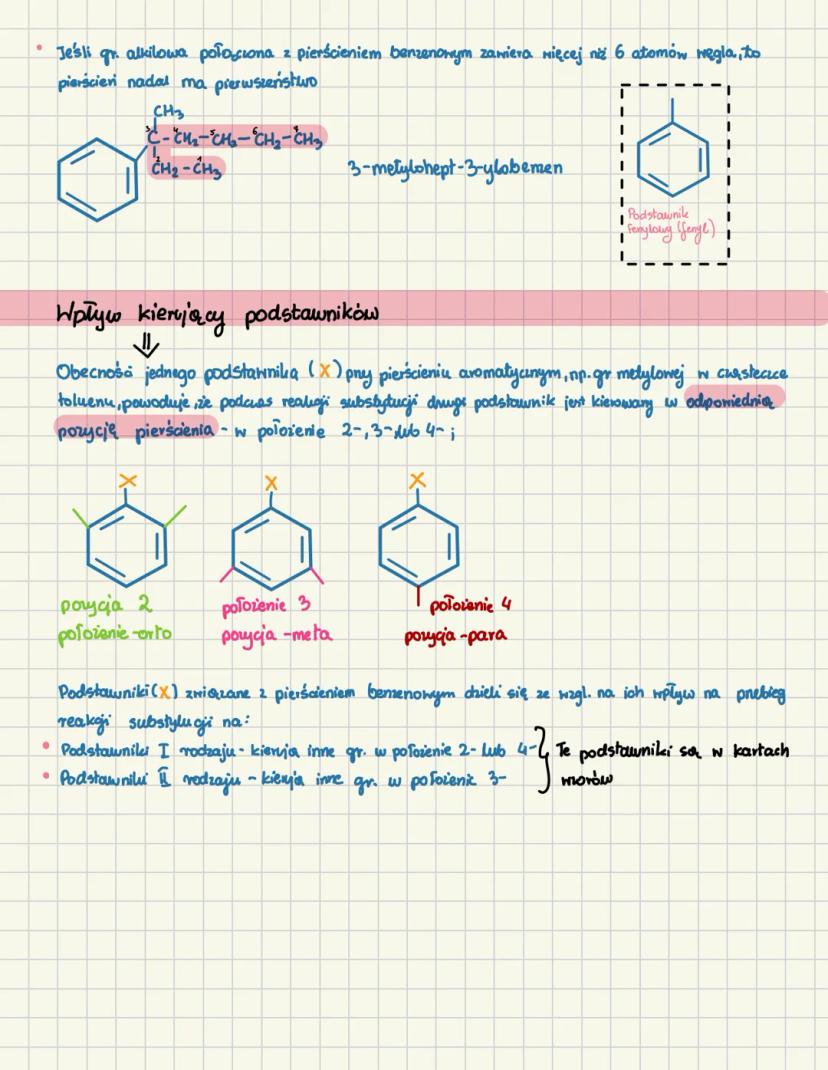 • Jeśli gr. alkilowa połączona z pierścieniem benzenowym zawiera więcej niż 6 atomów węgla, to
pierścień nadal ma pierwszeństwo
CH₃
3 4 5 6 7
C - CH₂ - CH₂ - CH₂ - CH₃
2 1
CH₂ - CH₃
3-metylohept-3-ylobenzen
Podstawnik
fenylowy (fenyl)
Wpływ kierujący podstawników
⇓
Obecność jednego podstawnika (X) przy pierścieniu aromatycznym, np. gr metylowej w cząsteczce
toluenu, powoduje, że podczas reakcji substytucji drugi podstawnik jest kierowany w odpowiednią
pozycję pierścienia - w położenie 2-, 3-, lub 4- ;
X X X
pozycja 2 położenie 3 położenie 4
położenie -orto pozycja -meta pozycja -para
Podstawniki (X) związane z pierścieniem benzenowym dzieli się ze wzgl. na ich wpływ na przebieg
reakcji substytucji na:
• Podstawniki I rodzaju - kierują inne gr. w położenie 2- lub 4- } Te podstawniki są w kartach
• Podstawniki II rodzaju - kierują inne gr. w położenie 3- wzorów